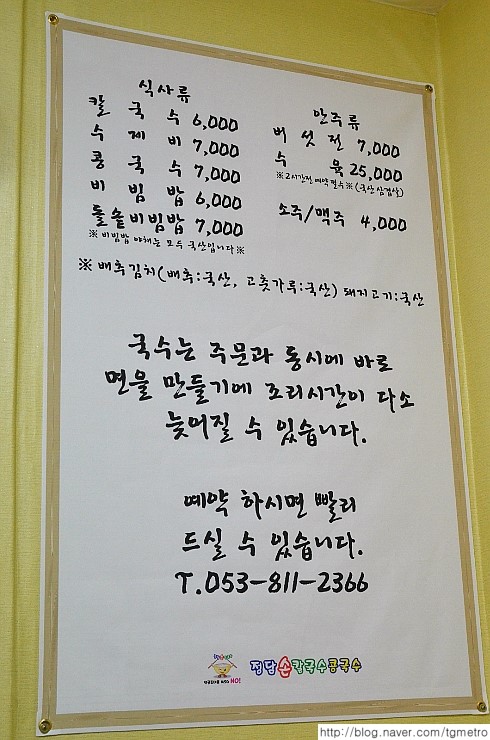 식사류
칼국수 6,000
수제비 7,000
콩국수 7,000
비빔밥 6,000
돌솥비빔밥 7,000
※비빔밥 야채는 모두 국산입니다※
안주류
버섯전 7,000
수육 25,000
※2시간전 예약필수※(국산삼겹살)
소주/맥주 4,000
※배추김치(배추:국산, 고춧가루:국산) 돼지고기:국산
국수는 주문과 동시에 바로
면을 만들기에 조리시간이 다소
늦어질 수 있습니다.
예약 하시면 빨리
드실 수 있습니다.
T.053-811-2366
NO!
정담손칼국수콩국수
http://blog.naver.com/tgmetro